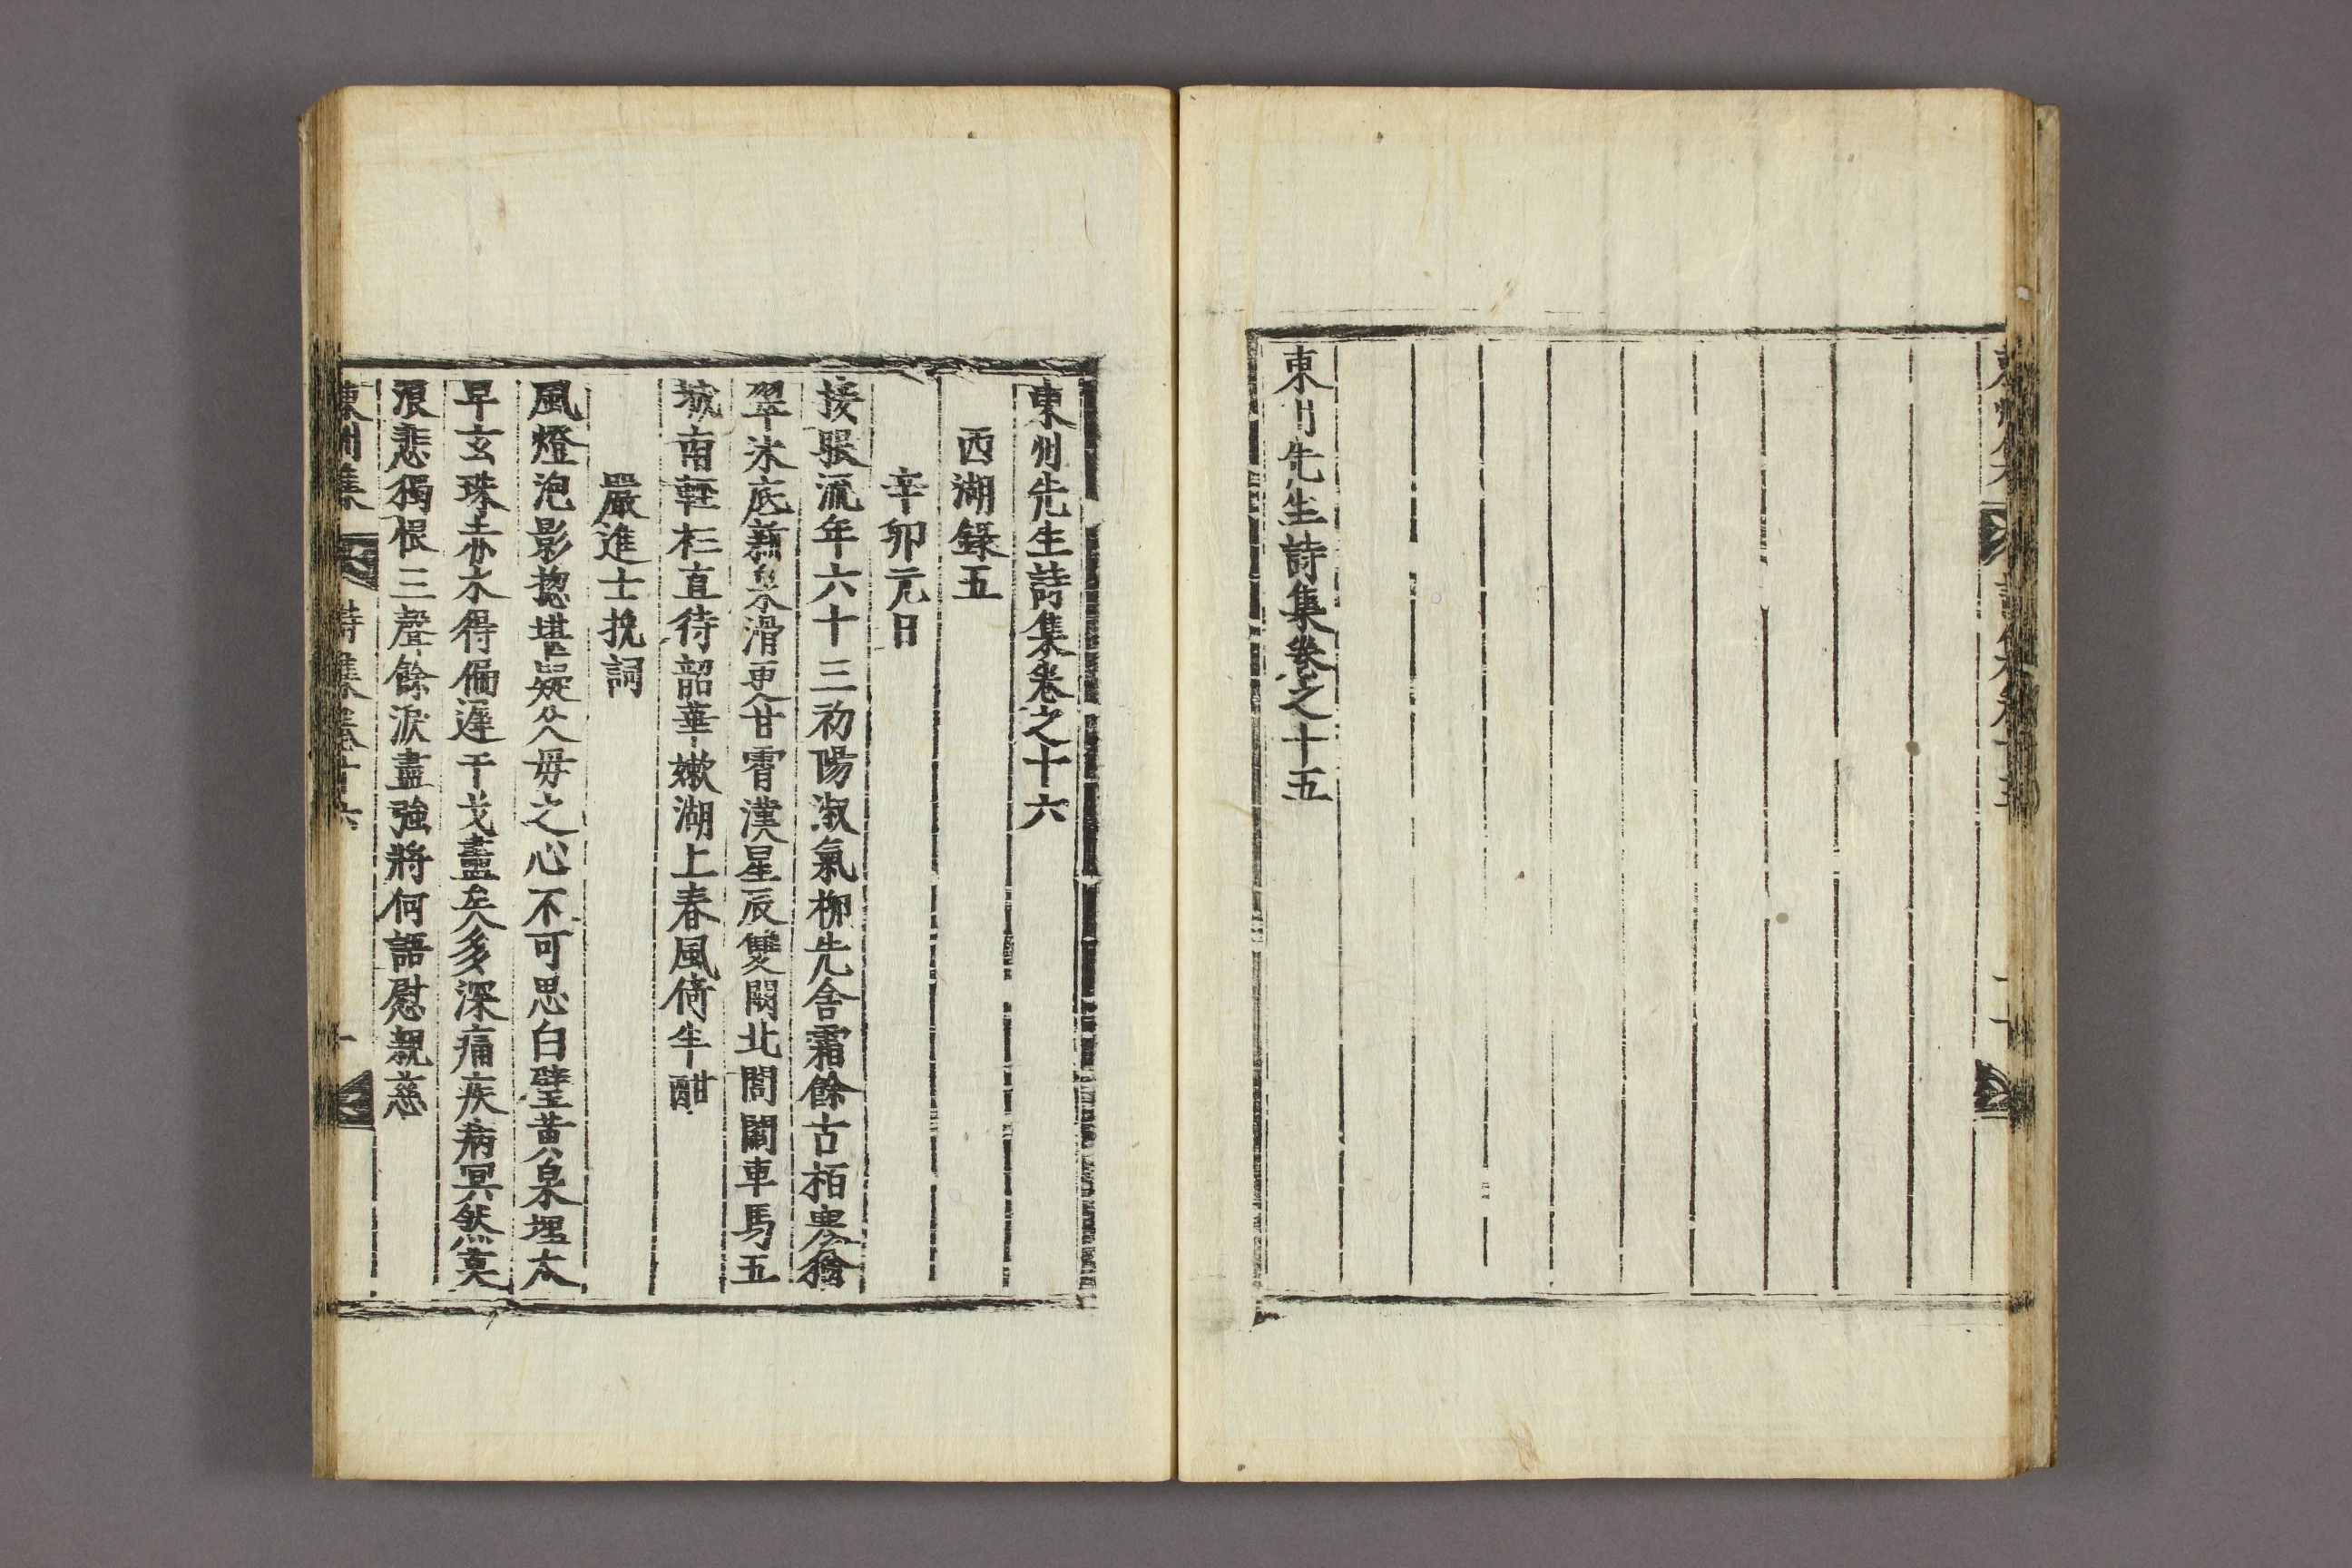 東州先生詩集卷之十五
東州先生詩集卷之十六
西湖錄五
辛卯元日
接眼流年六十三初陽淑氣柳先含霜餘古栢寒猶
翠氷底新泉滑更甘霄漢星辰雙闕北閭闔車馬五
城南輕衫直待韶華嫩湖上春風倚半酣
嚴進士挽詞
風燈泡影摠堪疑父母之心不可思白璧黃泉埋太
早玄珠赤水得偏遲干戈盡矣多深痛疾病冥然莫
浪悲獨恨三聲餘淚盡強將何語慰親慈
東州集 詩集卷十六 一